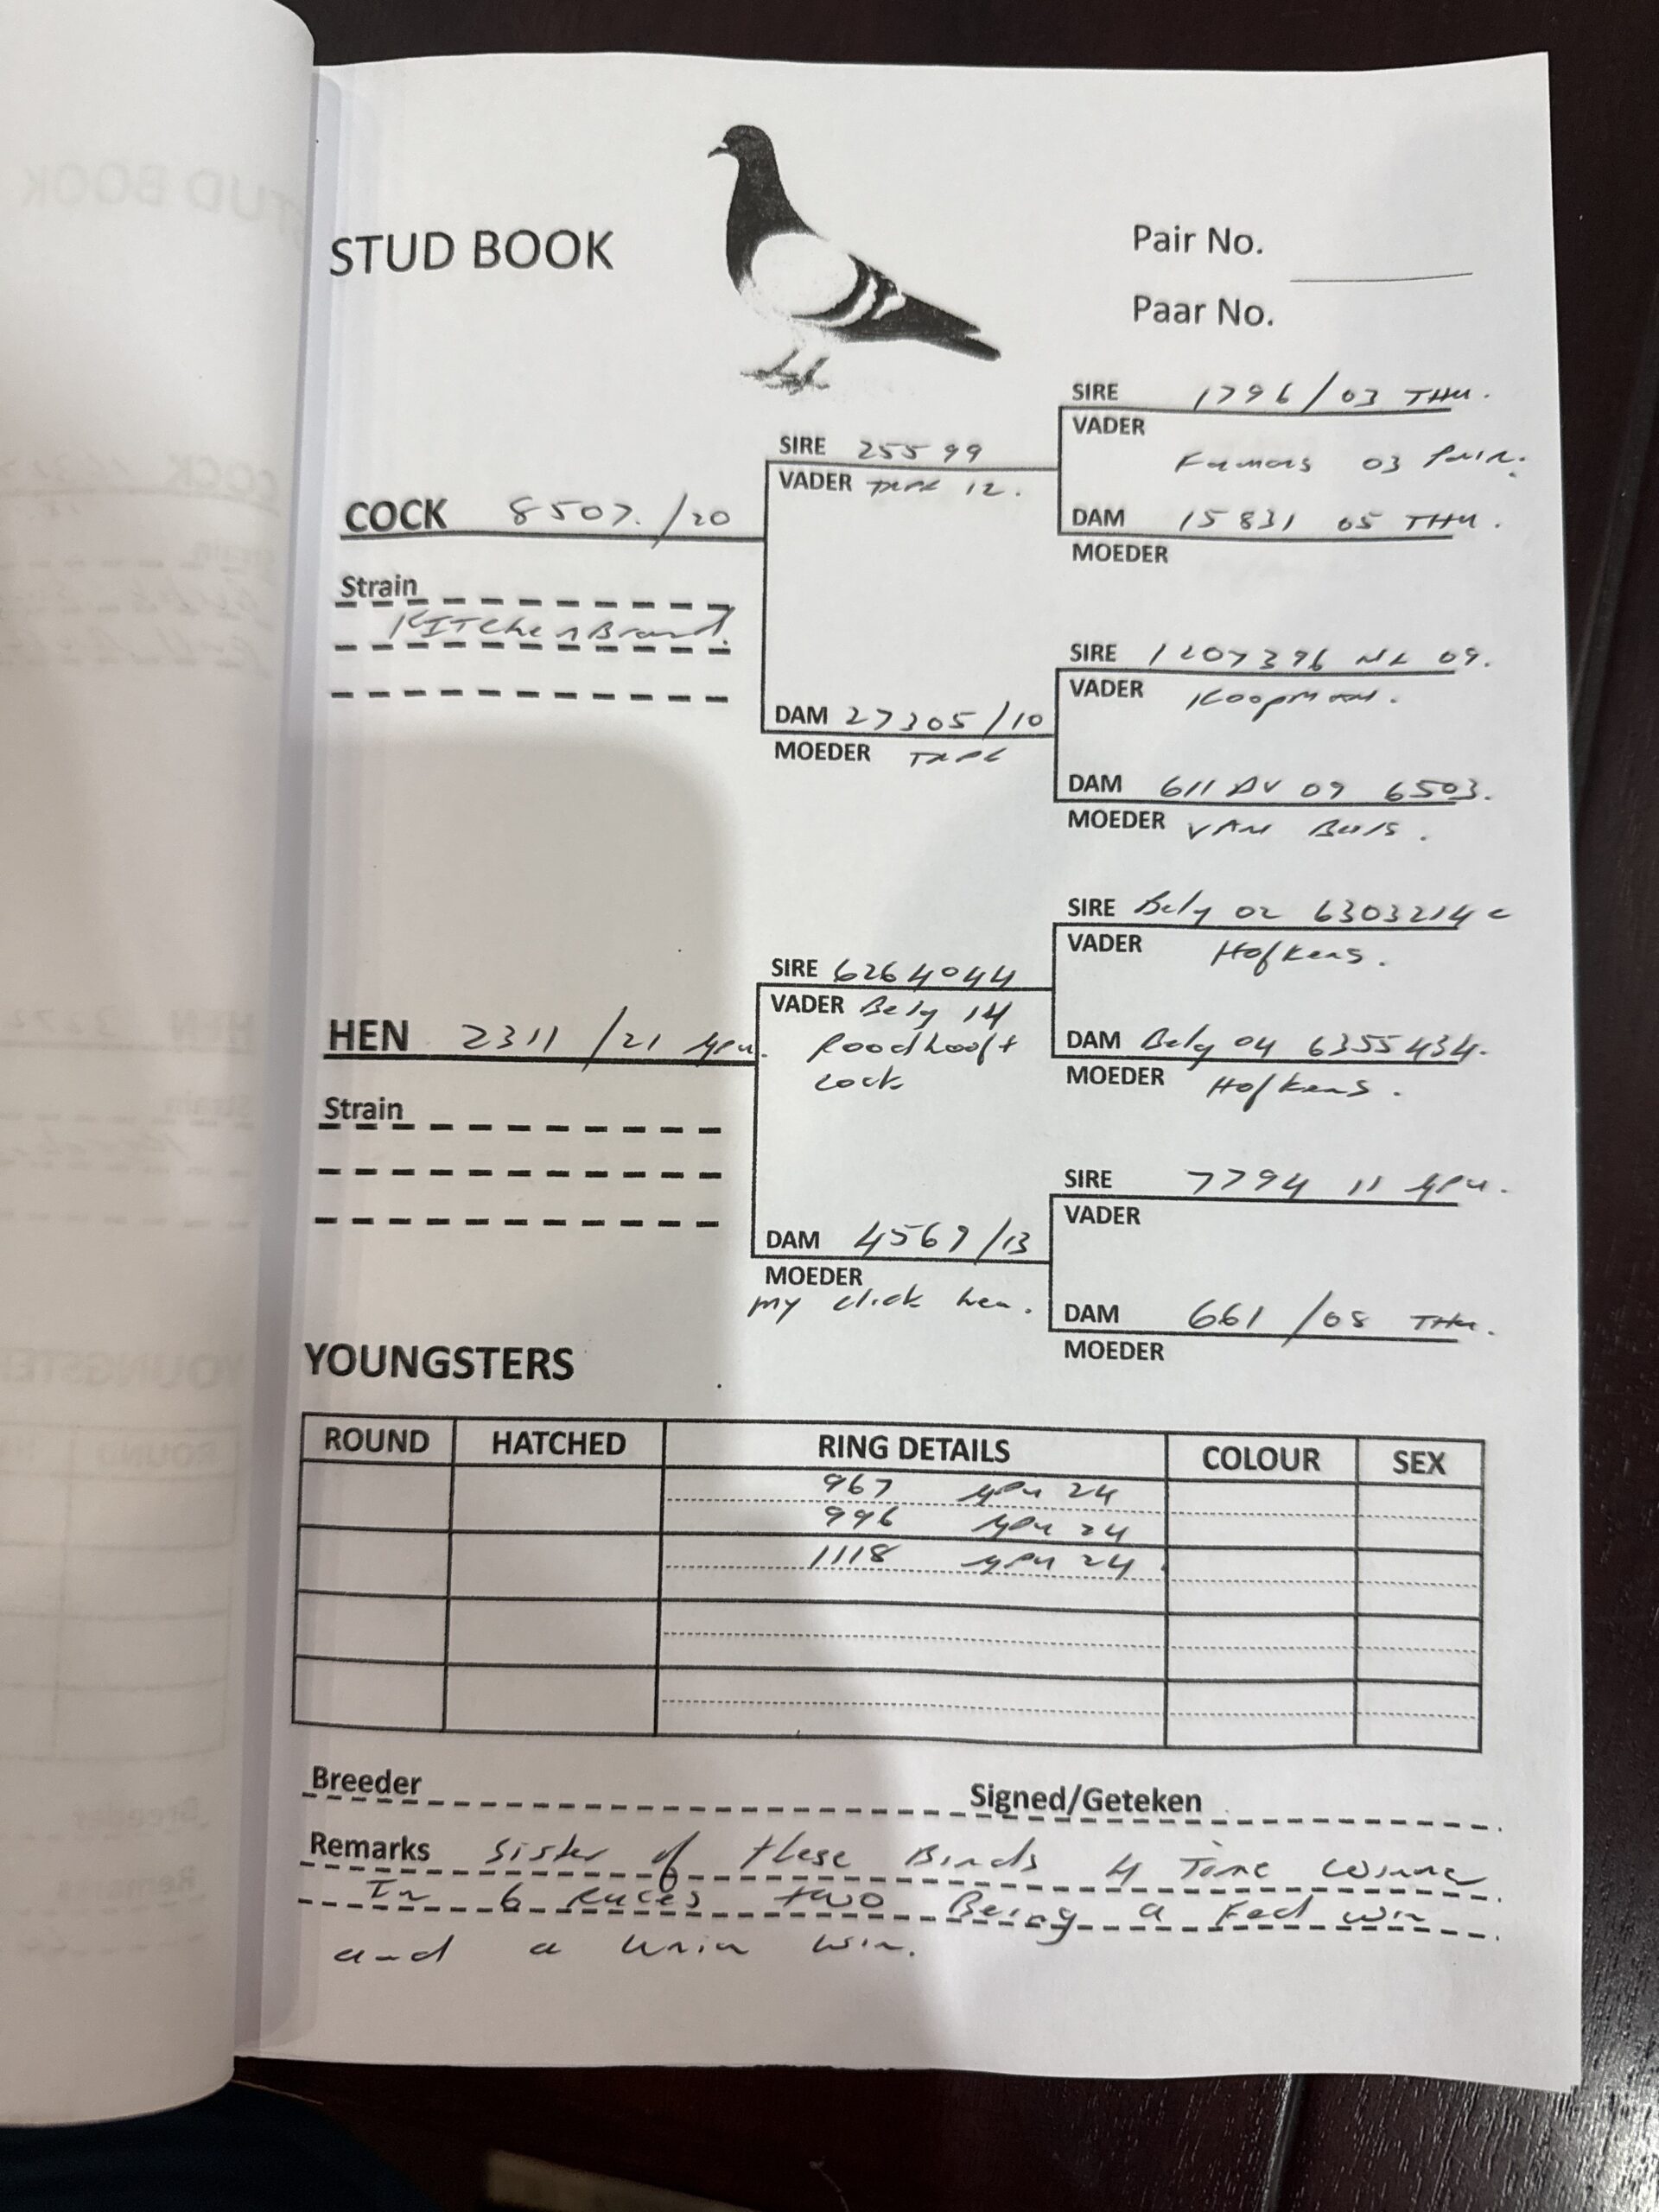 STUD BOOK
Pair No.
Paar No.
SIRE 1796/03 THU.
VADER
Famous 03 Pair.
DAM 15831 05 THU.
MOEDER
SIRE 25599
VADER 12.
COCK 8507./20
Strain
KITchenBrand.
SIRE 1207396 NL 09.
VADER Koopman.
DAM 27305/10
MOEDER
DAM 611 DV 09 6503.
MOEDER VAN Buis.
SIRE Belg 02 6303214
VADER Hofkens.
SIRE 6264044
VADER Belg 14
Roodhooft
cock
HEN 2311/21
Strain
DAM Belg 04 6355434.
MOEDER Hofkens.
SIRE 7794 11
VADER
DAM 4569/13
MOEDER
my click hen.
DAM 661/08 THU.
MOEDER
YOUNGSTERS
ROUND HATCHED RING DETAILS COLOUR SEX
967 24
996 24
1118 24
Breeder Signed/Geteken
Remarks Sister of these Birds 4 Time winner
In 6 Races two Being a Fed win
and a Union win.